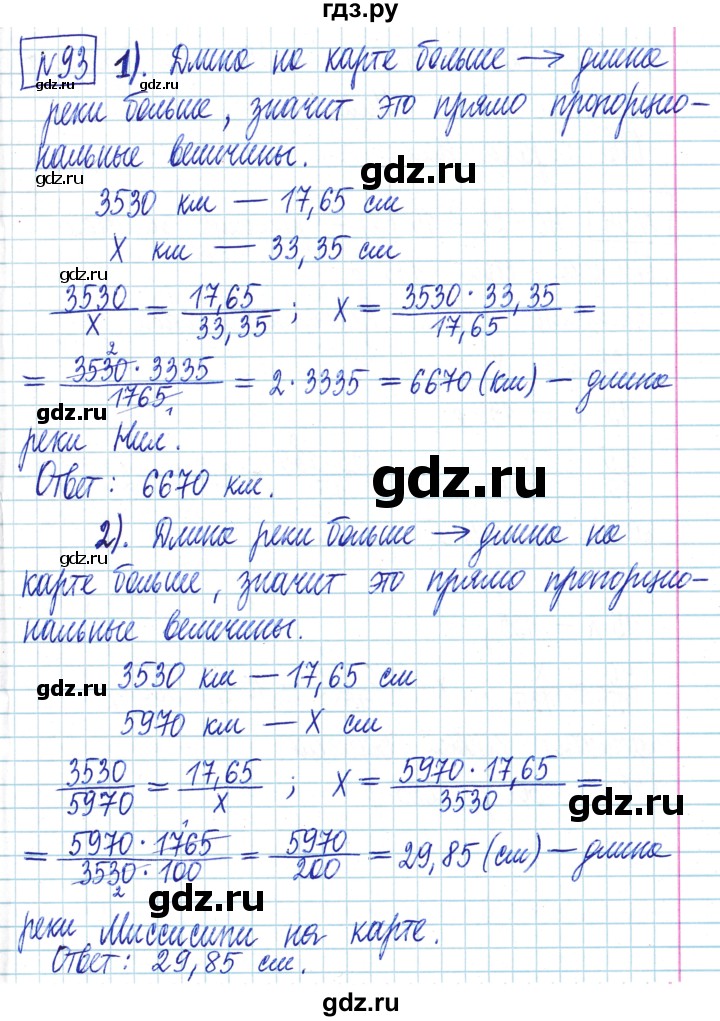 гдз.ру
№93 1). Длина на карте больше → длина
реки больше, значит это прямо пропорцио-
нальные величины.
3530 км — 17,65 см
X км — 33,35 см
3530/X = 17,65/33,35 ; X = 3530·33,35/17,65 =
= 3530·3335/1765 = 2·3335 = 6670 (км) — длина
реки Нил.
Ответ: 6670 км.
2). Длина реки больше → длина на
карте больше, значит это прямо пропорцио-
нальные величины.
3530 км — 17,65 см
5970 км — X см
3530/5970 = 17,65/X ; X = 5970·17,65/3530 =
= 5970·1765/3530·100 = 5970/200 = 29,85 (см) — длина
реки Миссисипи на карте.
Ответ: 29,85 см.
gdz.ru